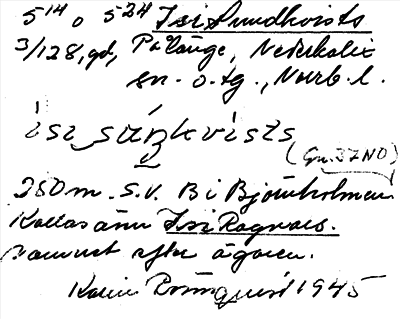 5¹⁴ o 5²⁴ Isi Sundkvists
3/128, gd, Pålänge, Nederkalix
sn. o. tg., Norrb. l.
isi su̇ŋkvists
(Gn. 3 I NO)
250 m. S.V. B i Björnholmen
Kallas även Isi Ragnars.
namnet efter ägaren.
Karin 1945